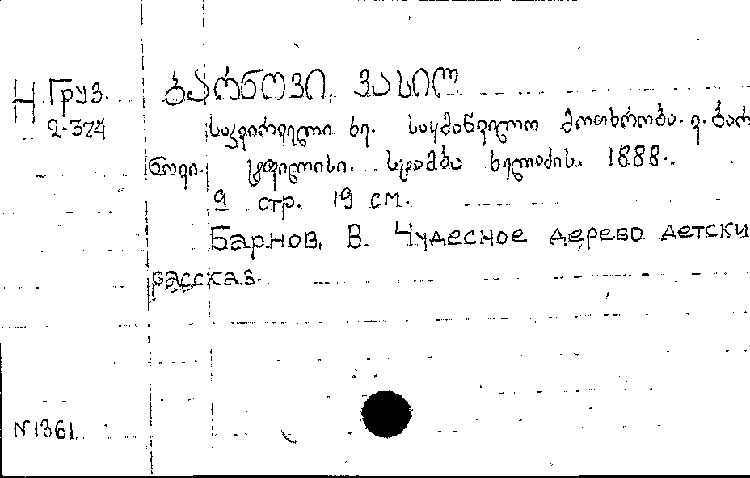 Н Груз. ბარნოვი, ვასილ
2-374
საკვირველი ხე. საყმაწვილო მოთხრობა. ვ. ბარ
ნოვი. ტფილისი. სტამბა ხელაძის. 1888.
9 стр. 19 см.
Барнов, В. Чудесное дерево детски
рассказ
N1361